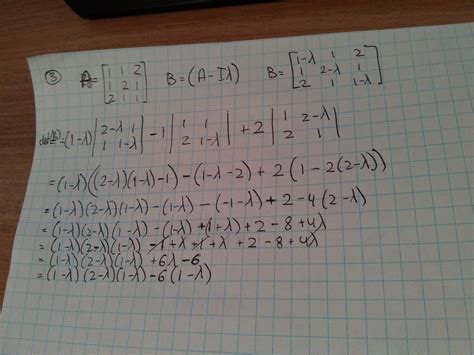 ③ A = [1 1 2; 1 2 1; 2 1 1] B = (A - Iλ) B = [1-λ 1 2; 1 2-λ 1; 2 1 1-λ]
= (1-λ) |2-λ 1; 1 1-λ| - 1 |1 1; 2 1-λ| + 2 |1 2-λ; 2 1|
= (1-λ)((2-λ)(1-λ)-1) - (1-λ-2) + 2(1-2(2-λ))
= (1-λ)(2-λ)(1-λ) - (1-λ) - (-1-λ) + 2 - 4(2-λ)
= (1-λ)(2-λ)(1-λ) - (1-λ) + (1+λ) + 2 - 8 + 4λ
= (1-λ)(2-λ)(1-λ) - 1 + λ + 1 + λ + 2 - 8 + 4λ
= (1-λ)(2-λ)(1-λ) + 6λ - 6
= (1-λ)(2-λ)(1-λ) - 6(1-λ)